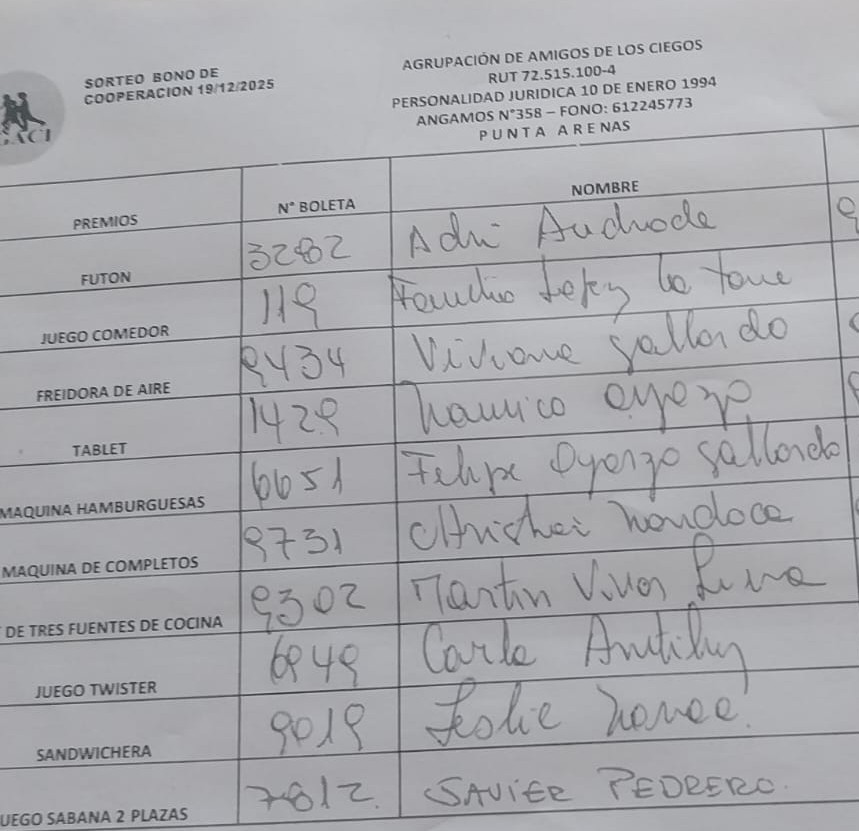 SORTEO BONO DE
COOPERACION 19/12/2025
AGRUPACIÓN DE AMIGOS DE LOS CIEGOS
RUT 72.515.100-4
PERSONALIDAD JURIDICA 10 DE ENERO 1994
ANGAMOS N°358 – FONO: 612245773
PUNTA ARENAS
PREMIOS N° BOLETA NOMBRE
FUTON 3282 Adri Andrade
JUEGO COMEDOR 119 la Torre
FREIDORA DE AIRE 9434 Viviana Gallardo
TABLET 1429 Oyarzo
MAQUINA HAMBURGUESAS 6651 Felipe Oyarzo Gallardo
MAQUINA DE COMPLETOS 9731
DE TRES FUENTES DE COCINA 9302 Martin Vivar
JUEGO TWISTER 6949 Carla
SANDWICHERA 9019 Leslie
UEGO SABANA 2 PLAZAS 7812. JAVIER PEDRERO.